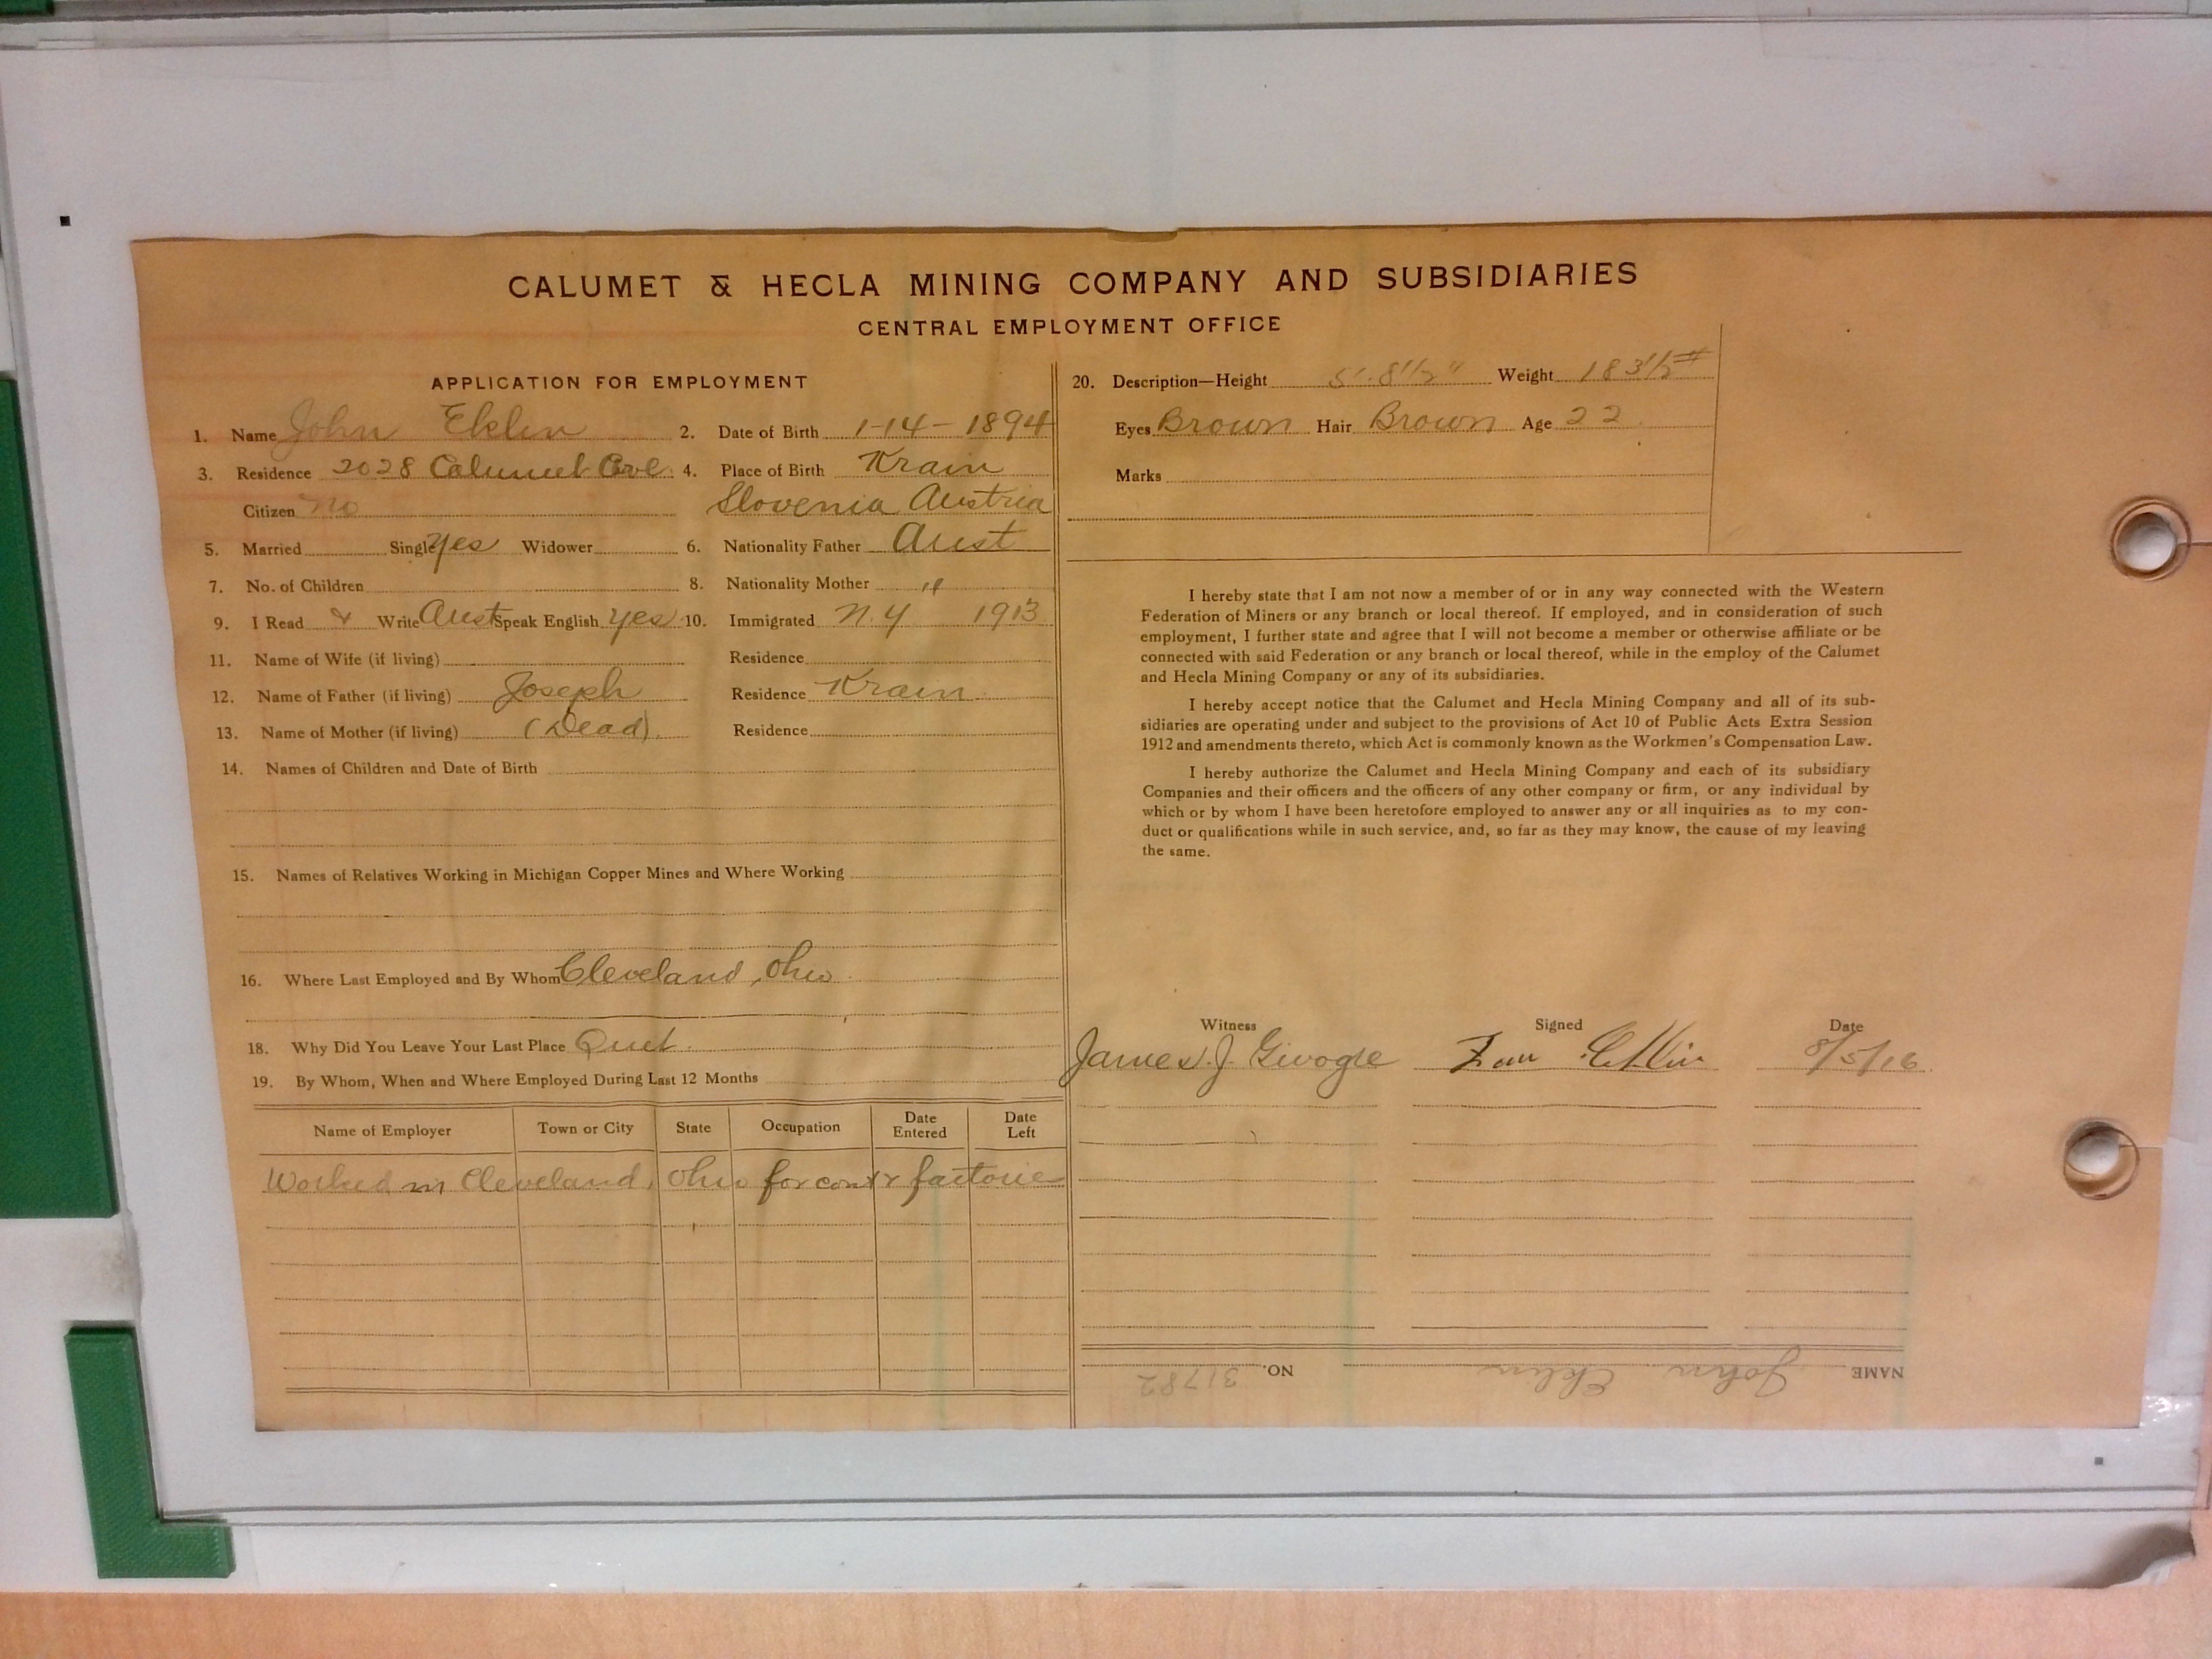 CALUMET & HECLA MINING COMPANY AND SUBSIDIARIES
CENTRAL EMPLOYMENT OFFICE
APPLICATION FOR EMPLOYMENT
1. Name John Eklin 2. Date of Birth 1-14-1894
3. Residence 2028 Calumet Ave 4. Place of Birth Krain
Citizen No Slovenia Austria
5. Married Single Yes Widower 6. Nationality Father Aust
7. No. of Children 8. Nationality Mother "
9. I Read & Write Aust Speak English Yes 10. Immigrated N.Y 1913
11. Name of Wife (if living) Residence
12. Name of Father (if living) Joseph Residence Krain
13. Name of Mother (if living) (Dead) Residence
14. Names of Children and Date of Birth
15. Names of Relatives Working in Michigan Copper Mines and Where Working
16. Where Last Employed and By Whom Cleveland, Ohio
18. Why Did You Leave Your Last Place Quit
19. By Whom, When and Where Employed During Last 12 Months
Name of Employer Town or City State Occupation Date Entered Date Left
Worked in Cleveland, Ohio for
20. Description—Height 5'. 8 1/2" Weight 183 1/2 #
Eyes Brown Hair Brown Age 22
Marks
I hereby state that I am not now a member of or in any way connected with the Western
Federation of Miners or any branch or local thereof. If employed, and in consideration of such
employment, I further state and agree that I will not become a member or otherwise affiliate or be
connected with said Federation or any branch or local thereof, while in the employ of the Calumet
and Hecla Mining Company or any of its subsidiaries.
I hereby accept notice that the Calumet and Hecla Mining Company and all of its sub-
sidiaries are operating under and subject to the provisions of Act 10 of Public Acts Extra Session
1912 and amendments thereto, which Act is commonly known as the Workmen's Compensation Law.
I hereby authorize the Calumet and Hecla Mining Company and each of its subsidiary
Companies and their officers and the officers of any other company or firm, or any individual by
which or by whom I have been heretofore employed to answer any or all inquiries as to my con-
duct or qualifications while in such service, and, so far as they may know, the cause of my leaving
the same.
Witness Signed Date
James. J. 8/5/16
NAME John Eklin NO. 31782